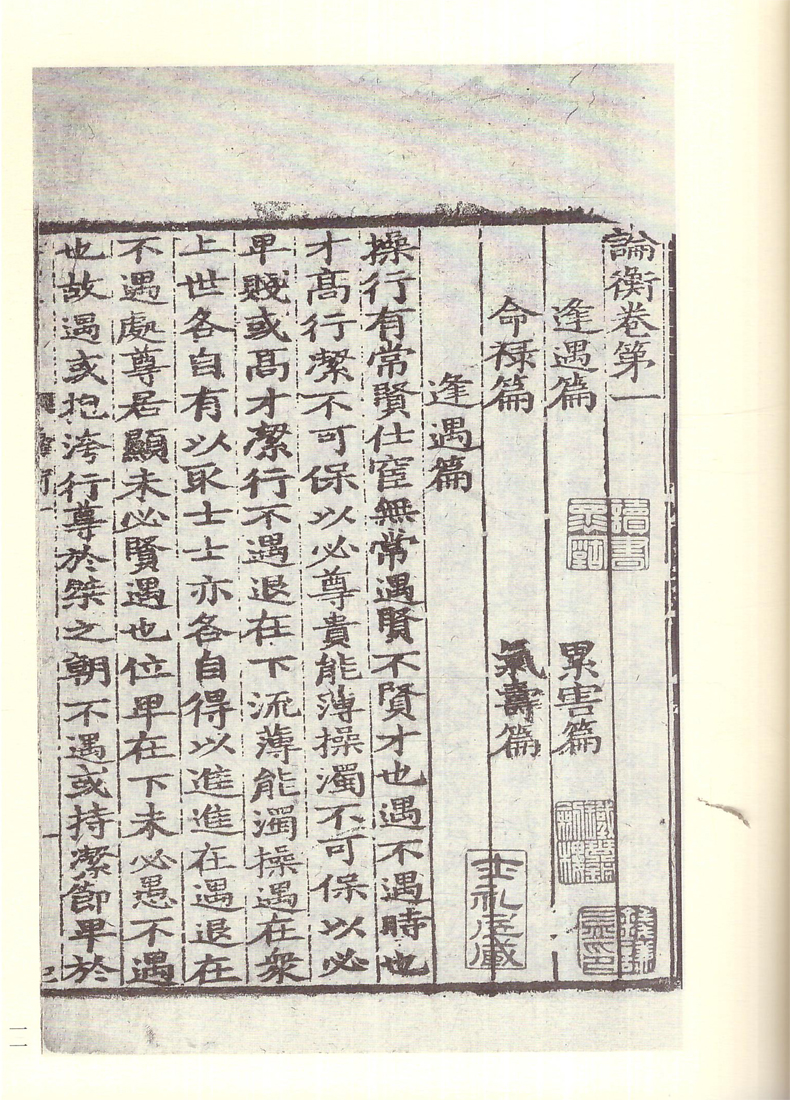 論衡卷第一
逢遇篇 累害篇
命禄篇 氣壽篇
逢遇篇
操行有常賢仕宦無常遇賢不賢才也遇不遇時也
才髙行潔不可保以必尊貴能薄操濁不可保以必
卑賤或髙才潔行不遇退在下流薄能濁操遇在衆
上世各自有以取士士亦各自得以進進在遇退在
不遇處尊居顯未必賢遇也位卑在下未必愚不遇
也故遇或抱洿行尊於桀之朝不遇或持潔節卑於
讀書
士礼居藏
二